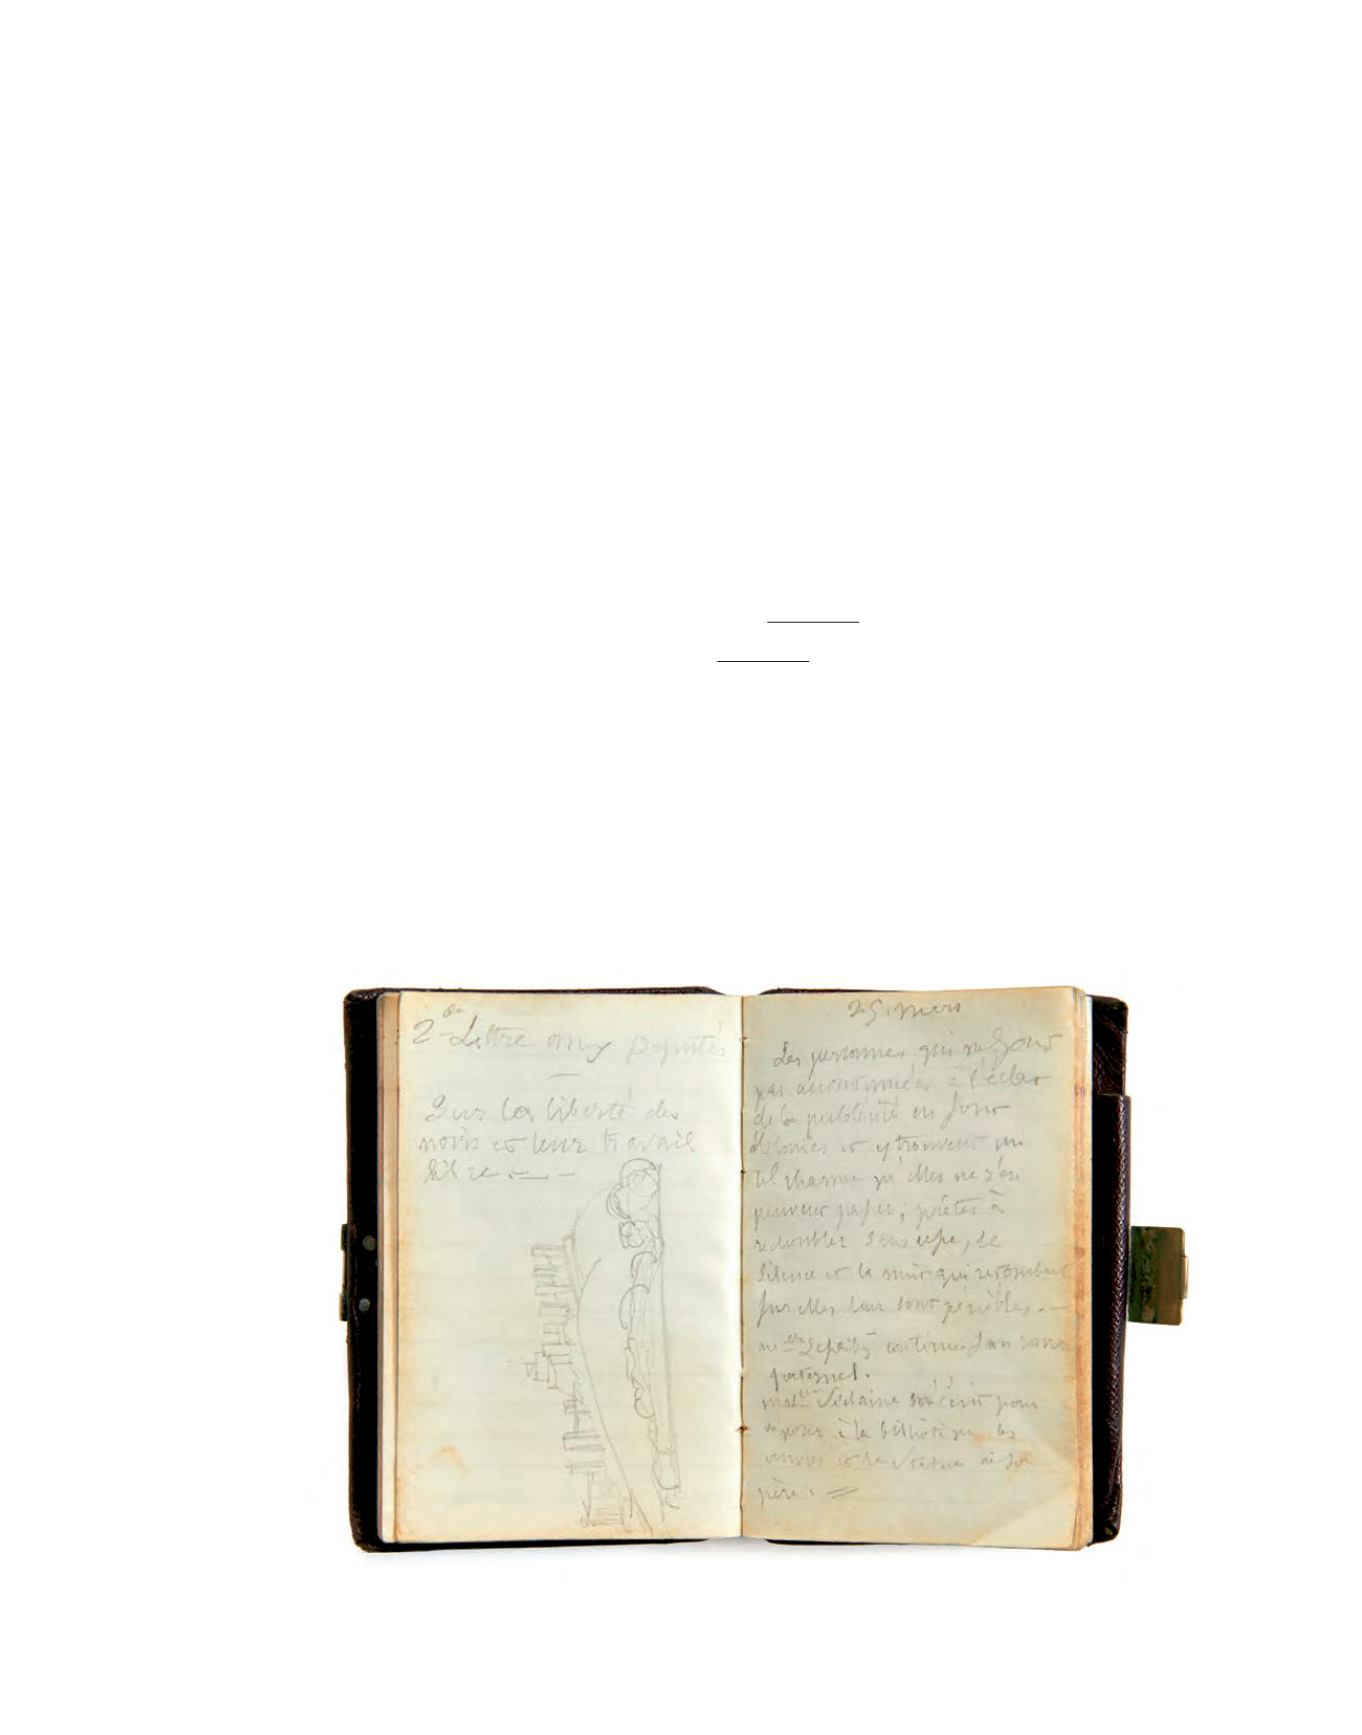 2de Lettre aux Députés
Sur la liberté des
noirs et leur travail
libre. —
25. mars
Les personnes qui ne sont
pas accoutumées à l'éclat
de la publicité en sont
et y trouvent un
tel charme qu'elles ne s'en
peuvent passer; prêtes à
redoubler sans cesse, le
silence et la nuit qui retombent
sur elles leur sont pénibles. —
continue son
paternel.
Sedaine écrit pour
déposer à la bibliothèque les
œuvres et la statue de son
père. =